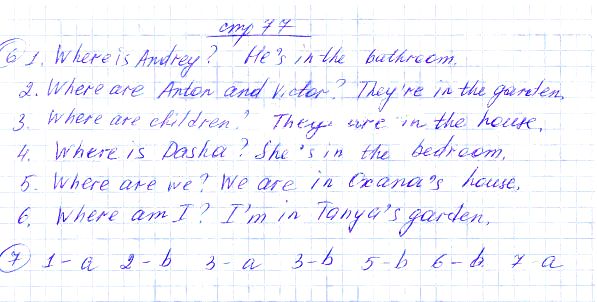 стр 77
6 1. Where is Andrey? He's in the bathroom.
2. Where are Anton and Victor? They're in the garden.
3. Where are children? They are in the house.
4. Where is Dasha? She's in the bedroom.
5. Where are we? We are in Oxana's house.
6. Where am I? I'm in Tanya's garden.
7 1-a 2-b 3-a 3-b 5-b 6-b 7-a